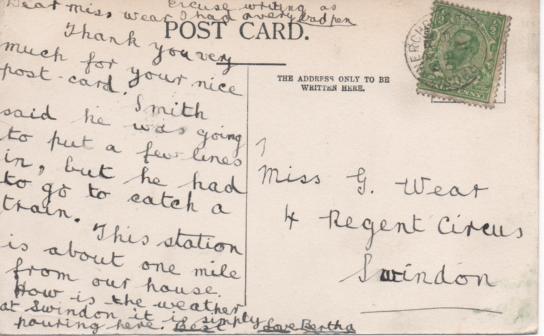 Excuse writing as
Dear Miss Wear I had a very bad pen
POST CARD.
Thank you very
much for your nice
post-card. Smith
said he was going
to put a few lines
in, but he had
to go to catch a
train.
This station
is about one mile
from our house.
How is the weather
at Swindon it is simply
pouring here. Best Love Bertha
THE ADDRESS ONLY TO BE
WRITTEN HERE.
Miss G. Wear
4 Regent Circus
Swindon